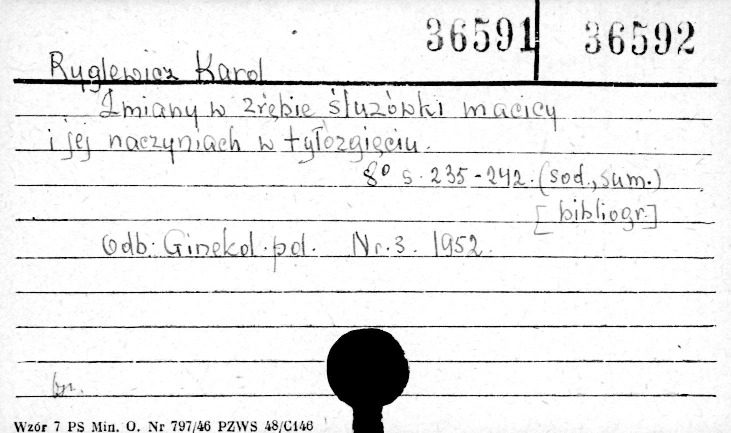 36591 36592
Ryglewicz Karol
Zmiany w zrębie śluzówki macicy
i jej naczyniach w tyłozgięciu.
8° s. 235-242. (sod., sum.)
[bibliogr.]
Odb: Ginekol. pol. Nr. 3. 1952.
br.
Wzór 7 PS Min. O. Nr 797/46 PZWS 48/C146